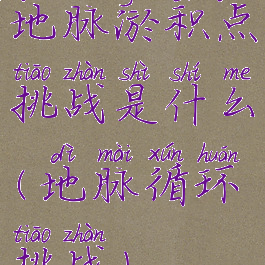 地脉淤积点
tiāo zhàn shì shí me
挑战是什么
dì mài xún huán
(地脉循环
tiāo zhàn
挑战)